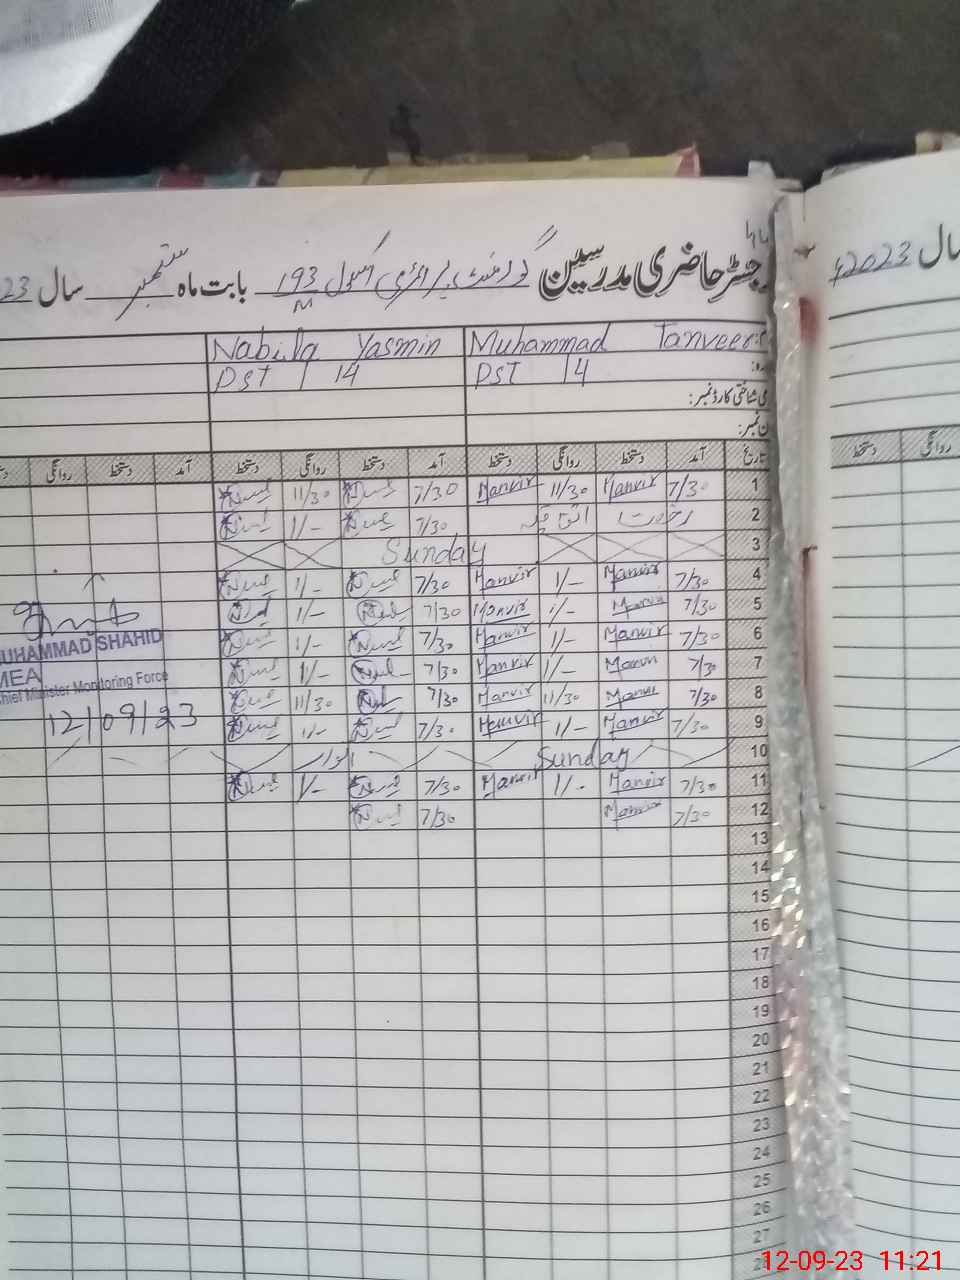 رجسٹر حاضری مدرسین گورنمنٹ پرائمری سکول 193 بابت ماہ ستمبر سال 23
سال 2023
Muhammad Tanveer Nabila Yasmin
PST 14 PST 14
شناختی کارڈ نمبر:
نمبر:
تاریخ آمد دستخط روانگی دستخط آمد دستخط روانگی دستخط آمد دستخط روانگی
روانگی دستخط
1 7/30 Manvir 11/30 Manvir 7/30 11/30
2 رخصت اتفاقیہ 7/30 1/-
3 Sunday
4 7/30 Manvir 1/- Manvir 7/30 1/-
5 7/30 Manvir 1/- Manvir 7/30 1/-
6 7/30 Manvir 1/- Manvir 7/30 1/-
7 7/30 1/- Manvir 7/30 1/-
8 7/30 11/30 Manvir 7/30 11/30
9 7/30 Manvir 1/- Manvir 7/30 1/-
10 Sunday اتوار
11 7/30 Manvir 1/- Manvir 7/30 1/-
12 7/30 7/30
13
14
15
16
17
18
19
20
21
22
23
24
25
26
27
MUHAMMAD SHAHID
MEA
Chief Minister Monitoring Force
12/09/23
12-09-23 11:21